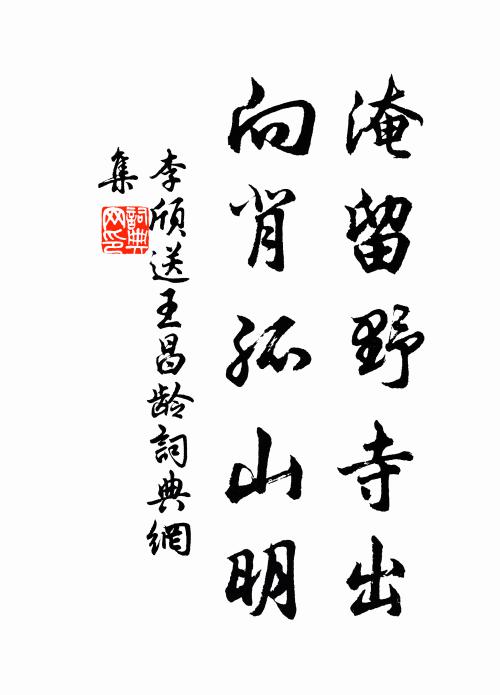 淹留野寺出
向背孤山明
李頎送王昌齡詞典網
集
詞典
网印